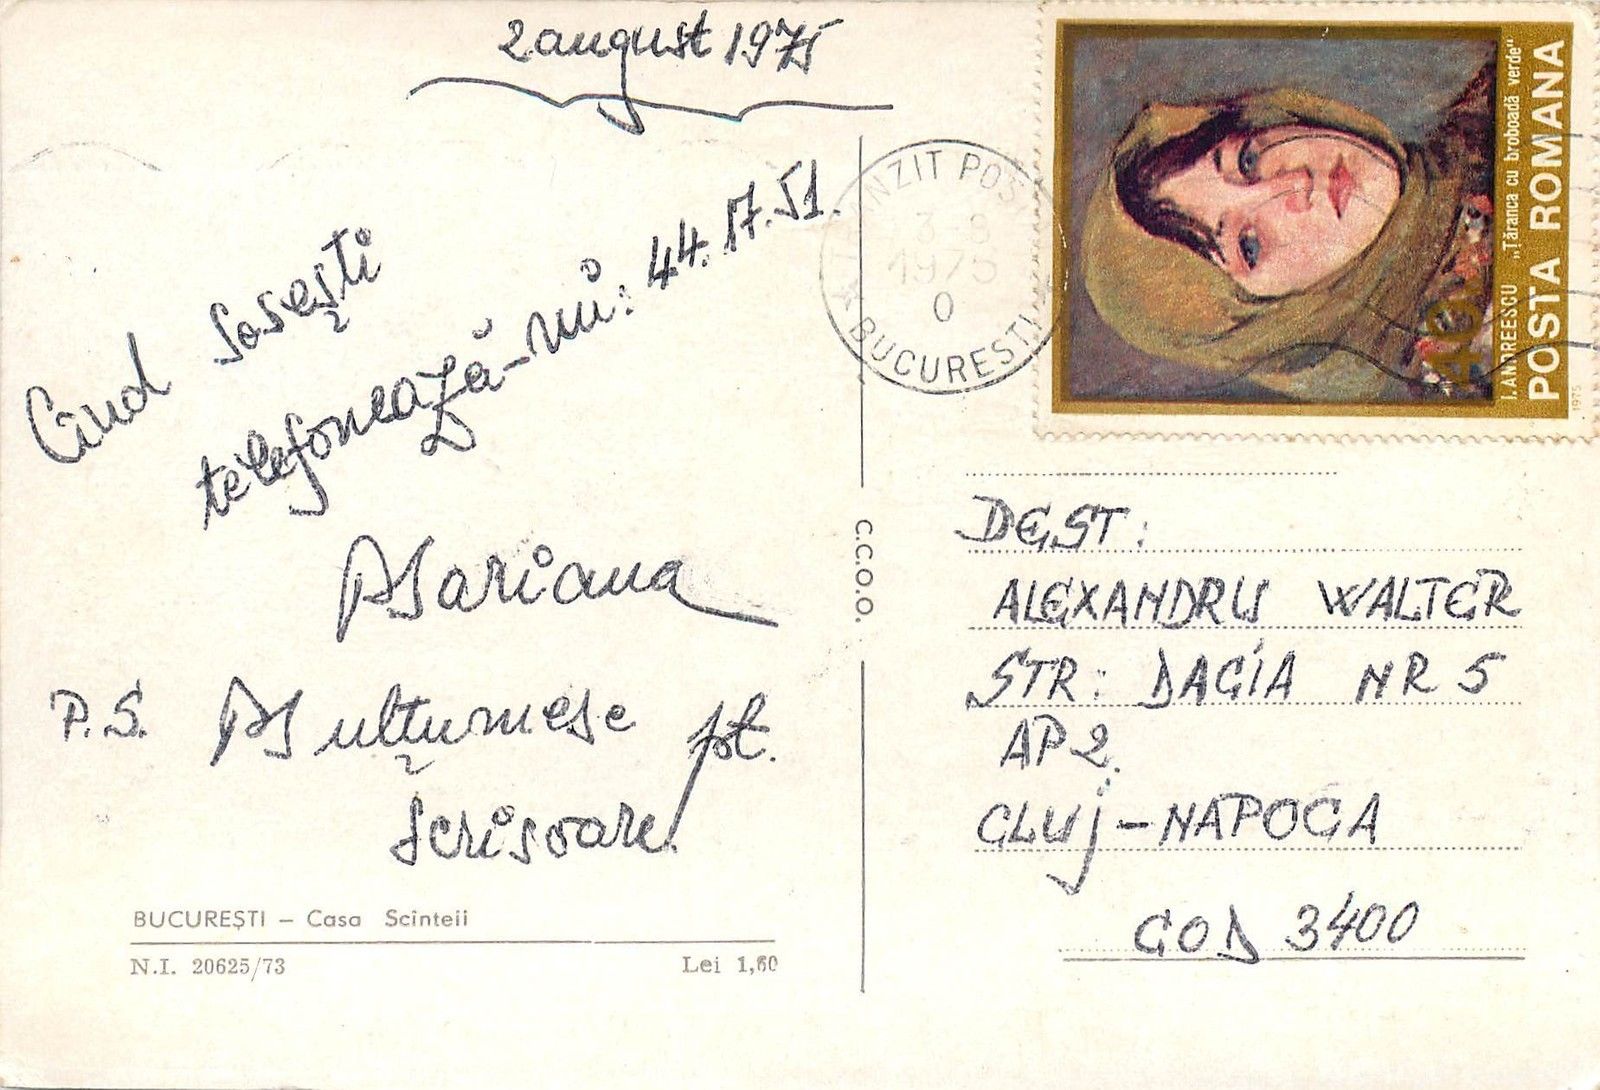 2 august 1975
Cînd sosești
telefonează-mi: 44.17.51.
Mariana
P.S. Mulțumesc pt.
scrisoare.
BUCUREȘTI – Casa Scînteii
N.I. 20625/73
Lei 1,60
C.C.O.O.
3-8
1975
0
BUCUREȘTI
40
I. ANDREESCU „Țăranca cu broboadă verde"
POSTA ROMANA
1975
DEST:
ALEXANDRU WALTER
STR: DACIA NR 5
AP 2
CLUJ-NAPOCA
COD 3400